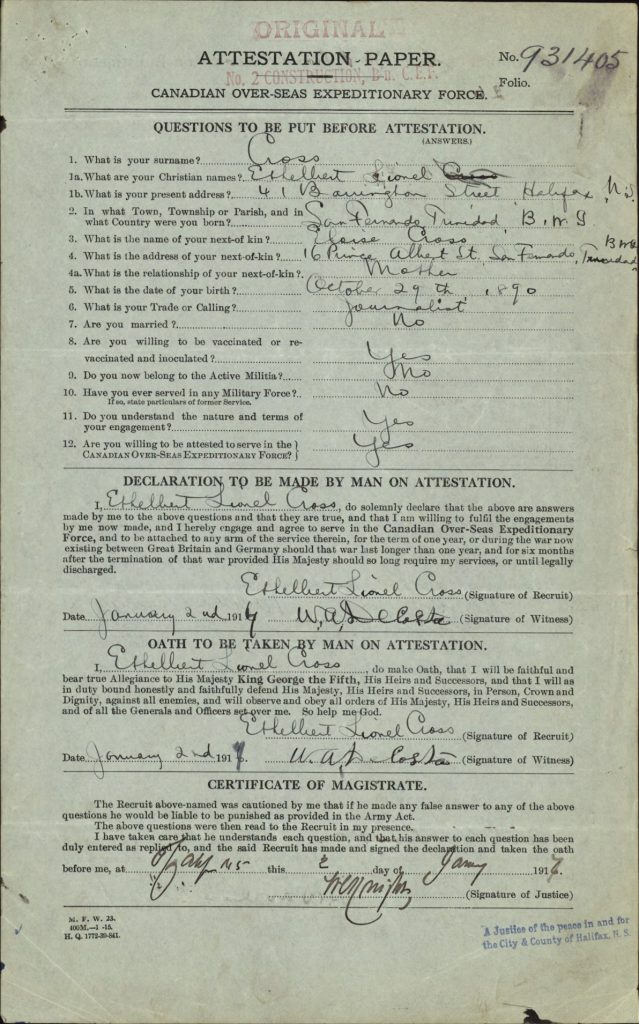 ORIGINAL
ATTESTATION PAPER. No. 931405
No. 2 CONSTRUCTION, B-n. C.E.F.
Folio.
CANADIAN OVER-SEAS EXPEDITIONARY FORCE.
QUESTIONS TO BE PUT BEFORE ATTESTATION.
(ANSWERS.)
1. What is your surname? Cross
1a. What are your Christian names? Ethelbert Lionel Cross
1b. What is your present address? 41 Barrington Street Halifax, N.S.
2. In what Town, Township or Parish, and in
what Country were you born? San Fernando, Trinidad, B.W.I
3. What is the name of your next-of-kin? Eloise Cross
4. What is the address of your next-of-kin? 16 Prince Albert St. San Fernando, Trinidad B.W.I.
4a. What is the relationship of your next-of-kin? Mother
5. What is the date of your birth? October 29th, 1890
6. What is your Trade or Calling? Journalist
7. Are you married? No
8. Are you willing to be vaccinated or re-
vaccinated and inoculated? Yes
9. Do you now belong to the Active Militia? No
10. Have you ever served in any Military Force? No
If so, state particulars of former Service.
11. Do you understand the nature and terms of
your engagement? Yes
12. Are you willing to be attested to serve in the
CANADIAN OVER-SEAS EXPEDITIONARY FORCE? Yes
DECLARATION TO BE MADE BY MAN ON ATTESTATION.
I, Ethelbert Lionel Cross, do solemnly declare that the above are answers
made by me to the above questions and that they are true, and that I am willing to fulfil the engagements
by me now made, and I hereby engage and agree to serve in the Canadian Over-Seas Expeditionary
Force, and to be attached to any arm of the service therein, for the term of one year, or during the war now
existing between Great Britain and Germany should that war last longer than one year, and for six months
after the termination of that war provided His Majesty should so long require my services, or until legally
discharged.
Ethelbert Lionel Cross (Signature of Recruit)
Date January 2nd 1917 W.A. DeCosta (Signature of Witness)
OATH TO BE TAKEN BY MAN ON ATTESTATION.
I, Ethelbert Lionel Cross, do make Oath, that I will be faithful and
bear true Allegiance to His Majesty King George the Fifth, His Heirs and Successors, and that I will as
in duty bound honestly and faithfully defend His Majesty, His Heirs and Successors, in Person, Crown and
Dignity, against all enemies, and will observe and obey all orders of His Majesty, His Heirs and Successors,
and of all the Generals and Officers set over me. So help me God.
Ethelbert Lionel Cross (Signature of Recruit)
Date January 2nd 1917. W.A. DeCosta (Signature of Witness)
CERTIFICATE OF MAGISTRATE.
The Recruit above-named was cautioned by me that if he made any false answer to any of the above
questions he would be liable to be punished as provided in the Army Act.
The above questions were then read to the Recruit in my presence.
I have taken care that he understands each question, and that his answer to each question has been
duly entered as replied to, and the said Recruit has made and signed the declaration and taken the oath
before me, at this 2 day of Jany 1917.
(Signature of Justice)
M. F. W. 23.
400M.—1-15.
H. Q. 1772-39-841.
A Justice of the peace in and for
the City & County of Halifax, N. S.